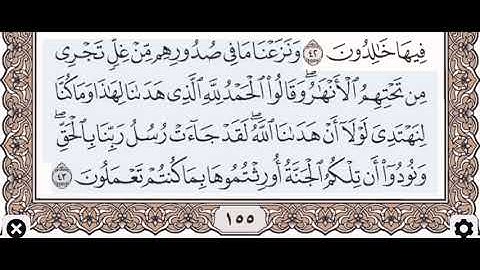 فِيهَا خَـٰلِدُونَ ٤٢ وَنَزَعْنَا مَا فِى صُدُورِهِم مِّنْ غِلٍّ تَجْرِى
مِن تَحْتِهِمُ ٱلْأَنْهَـٰرُ ۖ وَقَالُوا۟ ٱلْحَمْدُ لِلَّهِ ٱلَّذِى هَدَىٰنَا لِهَـٰذَا وَمَا كُنَّا
لِنَهْتَدِىَ لَوْلَآ أَنْ هَدَىٰنَا ٱللَّهُ ۖ لَقَدْ جَآءَتْ رُسُلُ رَبِّنَا بِٱلْحَقِّ ۖ
وَنُودُوٓا۟ أَن تِلْكُمُ ٱلْجَنَّةُ أُورِثْتُمُوهَا بِمَا كُنتُمْ تَعْمَلُونَ ٤٣
١٥٥